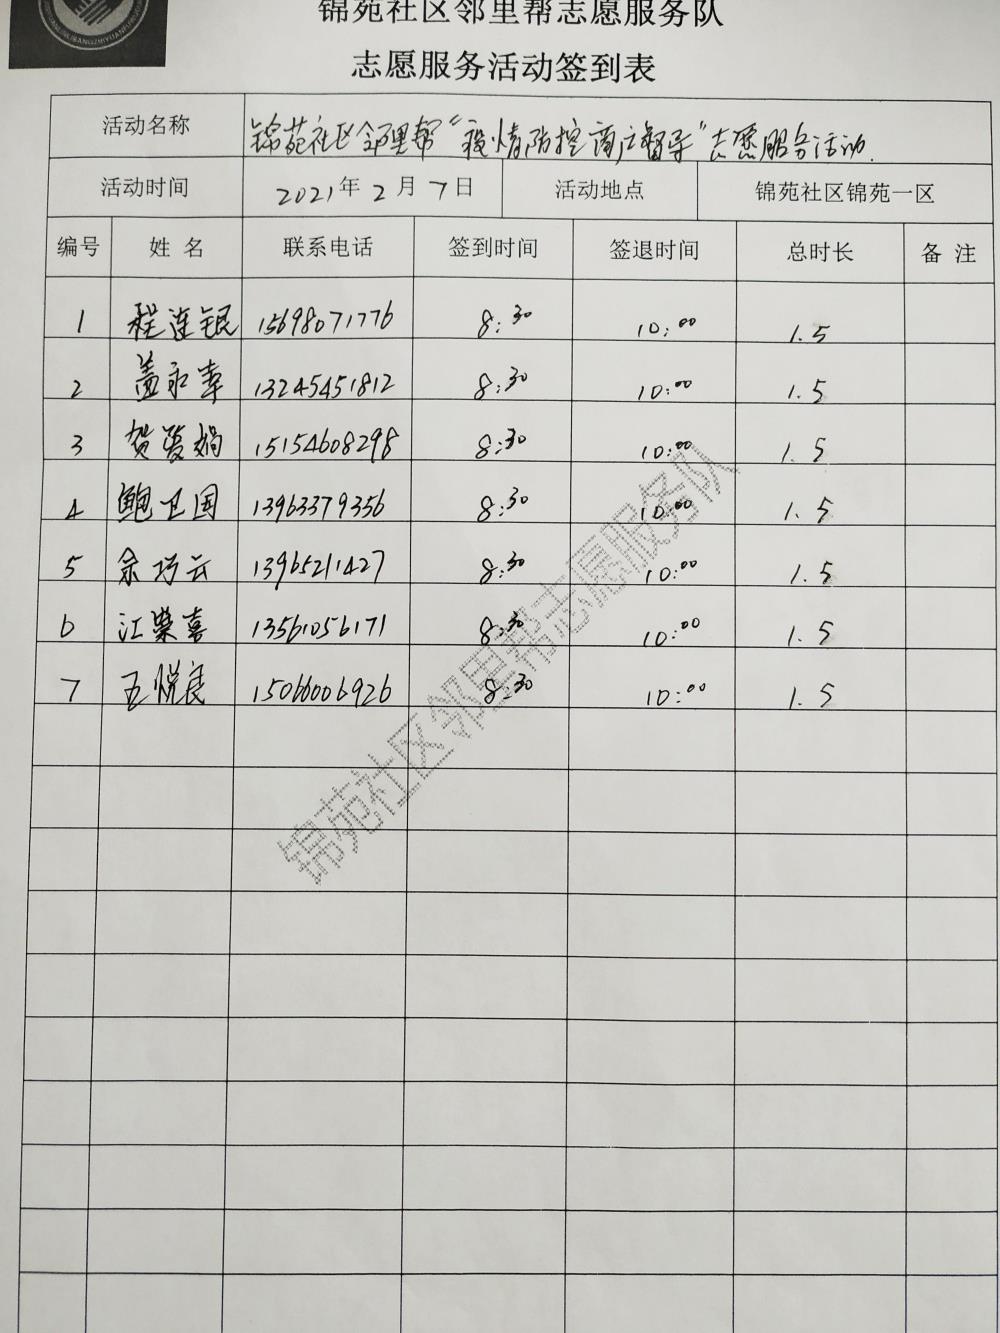 锦苑社区邻里帮志愿服务队
志愿服务活动签到表
活动名称 锦苑社区邻里帮“疫情防控商户督导”志愿服务活动.
活动时间 2021年2月7日 活动地点 锦苑社区锦苑一区
编号 姓名 联系电话 签到时间 签退时间 总时长 备注
1 程连银 15698071776 8:30 10:00 1.5
2 盖永幸 13245451812 8:30 10:00 1.5
3 贺爱娟 15154608298 8:30 10:00 1.5
4 鲍卫国 13963379356 8:30 10:00 1.5
5 余巧云 13965211427 8:30 10:00 1.5
6 江荣喜 13561056171 8:30 10:00 1.5
7 王悦良 15066006926 8:30 10:00 1.5
锦苑社区邻里帮志愿服务队